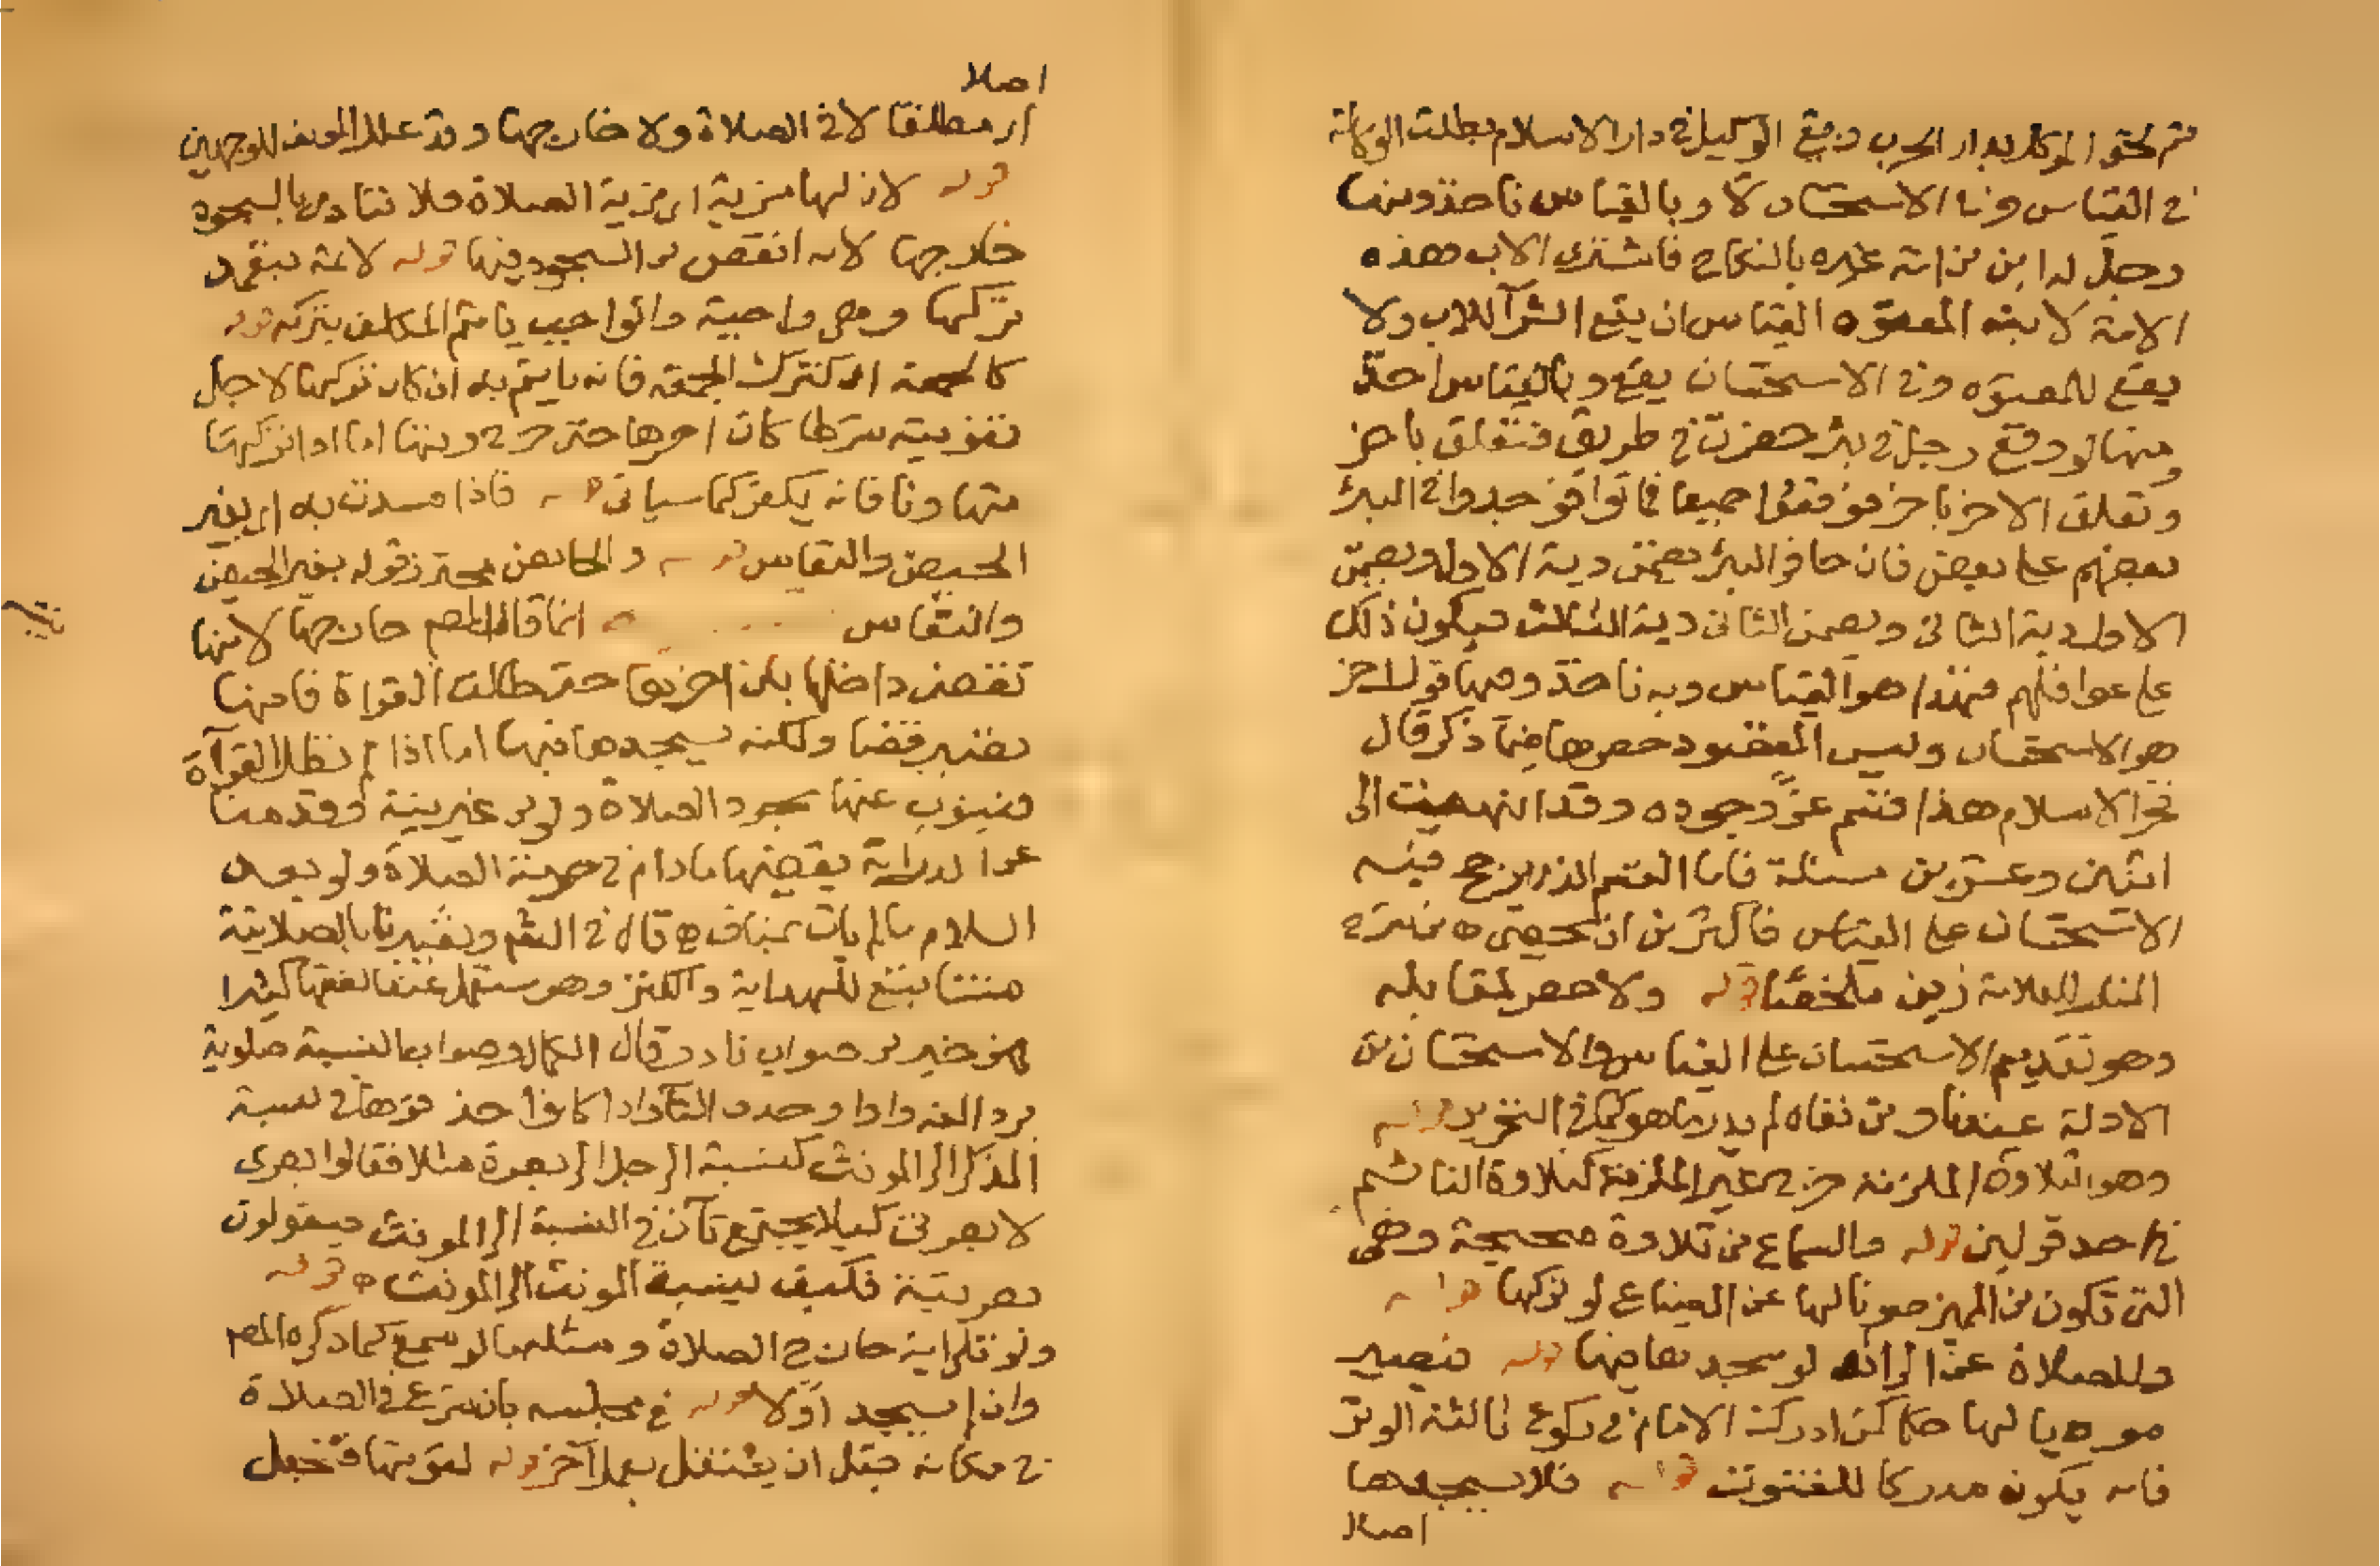 ثم لحق الموكل بدار الحرب وبقي الوكيل في دار الاسلام بطلت الوكالة
في القياس وفي الاستحسان لا وبالقياس ناخذ ومنها
رجل له ابن من امة غيره بالنكاح فاشترى الاب هذه
الامة لابنه المعتوه القياس ان يقع الشرآ للاب ولا
يقع للمعتوه وفي الاستحسان يقع وبالقياس اخذ
ومنها لو وقع رجل في بئر حفرت في طريق فتعلق باخر
وتعلق الاخر باخر فوقعوا جميعا فماتوا فوجدوا في البئر
بعضهم على بعض فان حافر البئر يضمن دية الاول ويضمن
الاول دية الثاني ويضمن الثاني دية الثالث فيكون ذلك
على عواقلهم فهذا هو القياس وبه ناخذ وفيها قول اخر
هو الاستحسان وليس المقصود حصرها فيما ذكر قال
فخر الاسلام هذا قسم عزّ وجوده وقد انتهيت الى
اثنين وعشرين مسئلة فاما القسم الذي يرجح فيه
الاستحسان على القياس فاكثر من ان يحصى ه من شرح
المنار للعلامة زين ملخصا قوله ولا حصر لمقابله
وهو تقديم الاستحسان على القياس والاستحسان من
الادلة عندنا ومن نفاه لم يدر ما هو كما في التحرير قوله
وهو التلاوة الملزمة خرج غير الملزمة كتلاوة النائم
في احد قولين قوله والسماع من تلاوة صحيحة وهي
التي تكون من المميز صونا لها عن الضياع لو تركها قوله
وللصلاة عن الزائد لو سجدها فيها قوله فيصير
موديا لها حكما كمن ادرك الامام في ركوع ثالثة الوتر
فانه يكون مدركا للقنوت قوله فلا يسجدها
اصلا
اصلا
اي مطلقا لا في الصلاة ولا خارجها وقد علل المصنف للوجهين
قوله لان لها مزية اي مزية الصلاة فلا تتادى بالسجود
خارجها لانه انقص من السجود فيها قوله لاثمه بتعمد
تركها وهي واجبة والواجب ياثم المكلف بتركه قوله
كالجمعة اي كترك الجمعة فانه ياثم به ان كان تركها لاجل
تفويته شرطا كان اخرها حتى خرج وينها اما اذا تركها
تهاونا فانه يكفر كما سياتي قوله فاذا فسدت به اي بغير
الحيض والنفاس قوله والحائض محترز قوله بغير الحيض
والنفاس قوله انما قال المص خارجها لانها
تقضى داخلها بان اخرها حتى طالت القراة فانها
تعتبر قضا ولكنه يسجدها فيها اما اذا لم تطل القرآة
فينوب عنها سجود الصلاة ولو من غير نية وقدمنا
عن الدراية يقضيها ما دام في حرمة الصلاة ولو بعد
السلام ما لم يات بمناف ه قال في الشم وتعبيرنا بالصلاتية
هنا تبع للهداية والكنز وهو مستعمل عند الفقها كثيرا
فهو خير من صواب نادر وقال الكمال وصوابه النسبة صلوية
برد الفه واوا وحذف التآ واذا كانوا حذفوها في نسبة
المذكر الى المونث كنسبة الرجل الى بصرة مثلا فقالوا بصري
لا بصرتي كيلا يجتمع تآن في النسبة الى المونث فيقولون
بصرتية فكيف بنسبة المونث الى المونث ه قوله
ولو تلا اية خارج الصلاة ومثله ما لو سمع كما ذكره المص
وان لم يسجد اولا قوله في مجلسه بان شرع في الصلاة
في مكانه قبل ان يشتغل بعمل آخر قوله لقوتها فتجعل